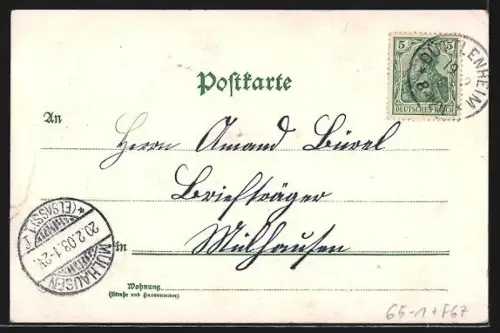 5
DEUTSCHES REICH
Postkarte
An
Herrn Amand Bürel
Briefträger
in Mülhausen
Wohnung
(Straße und Hausnummer)
MÜLHAUSEN
20.2.03.1-2N.
*(ELSASS)1
65-1+F67